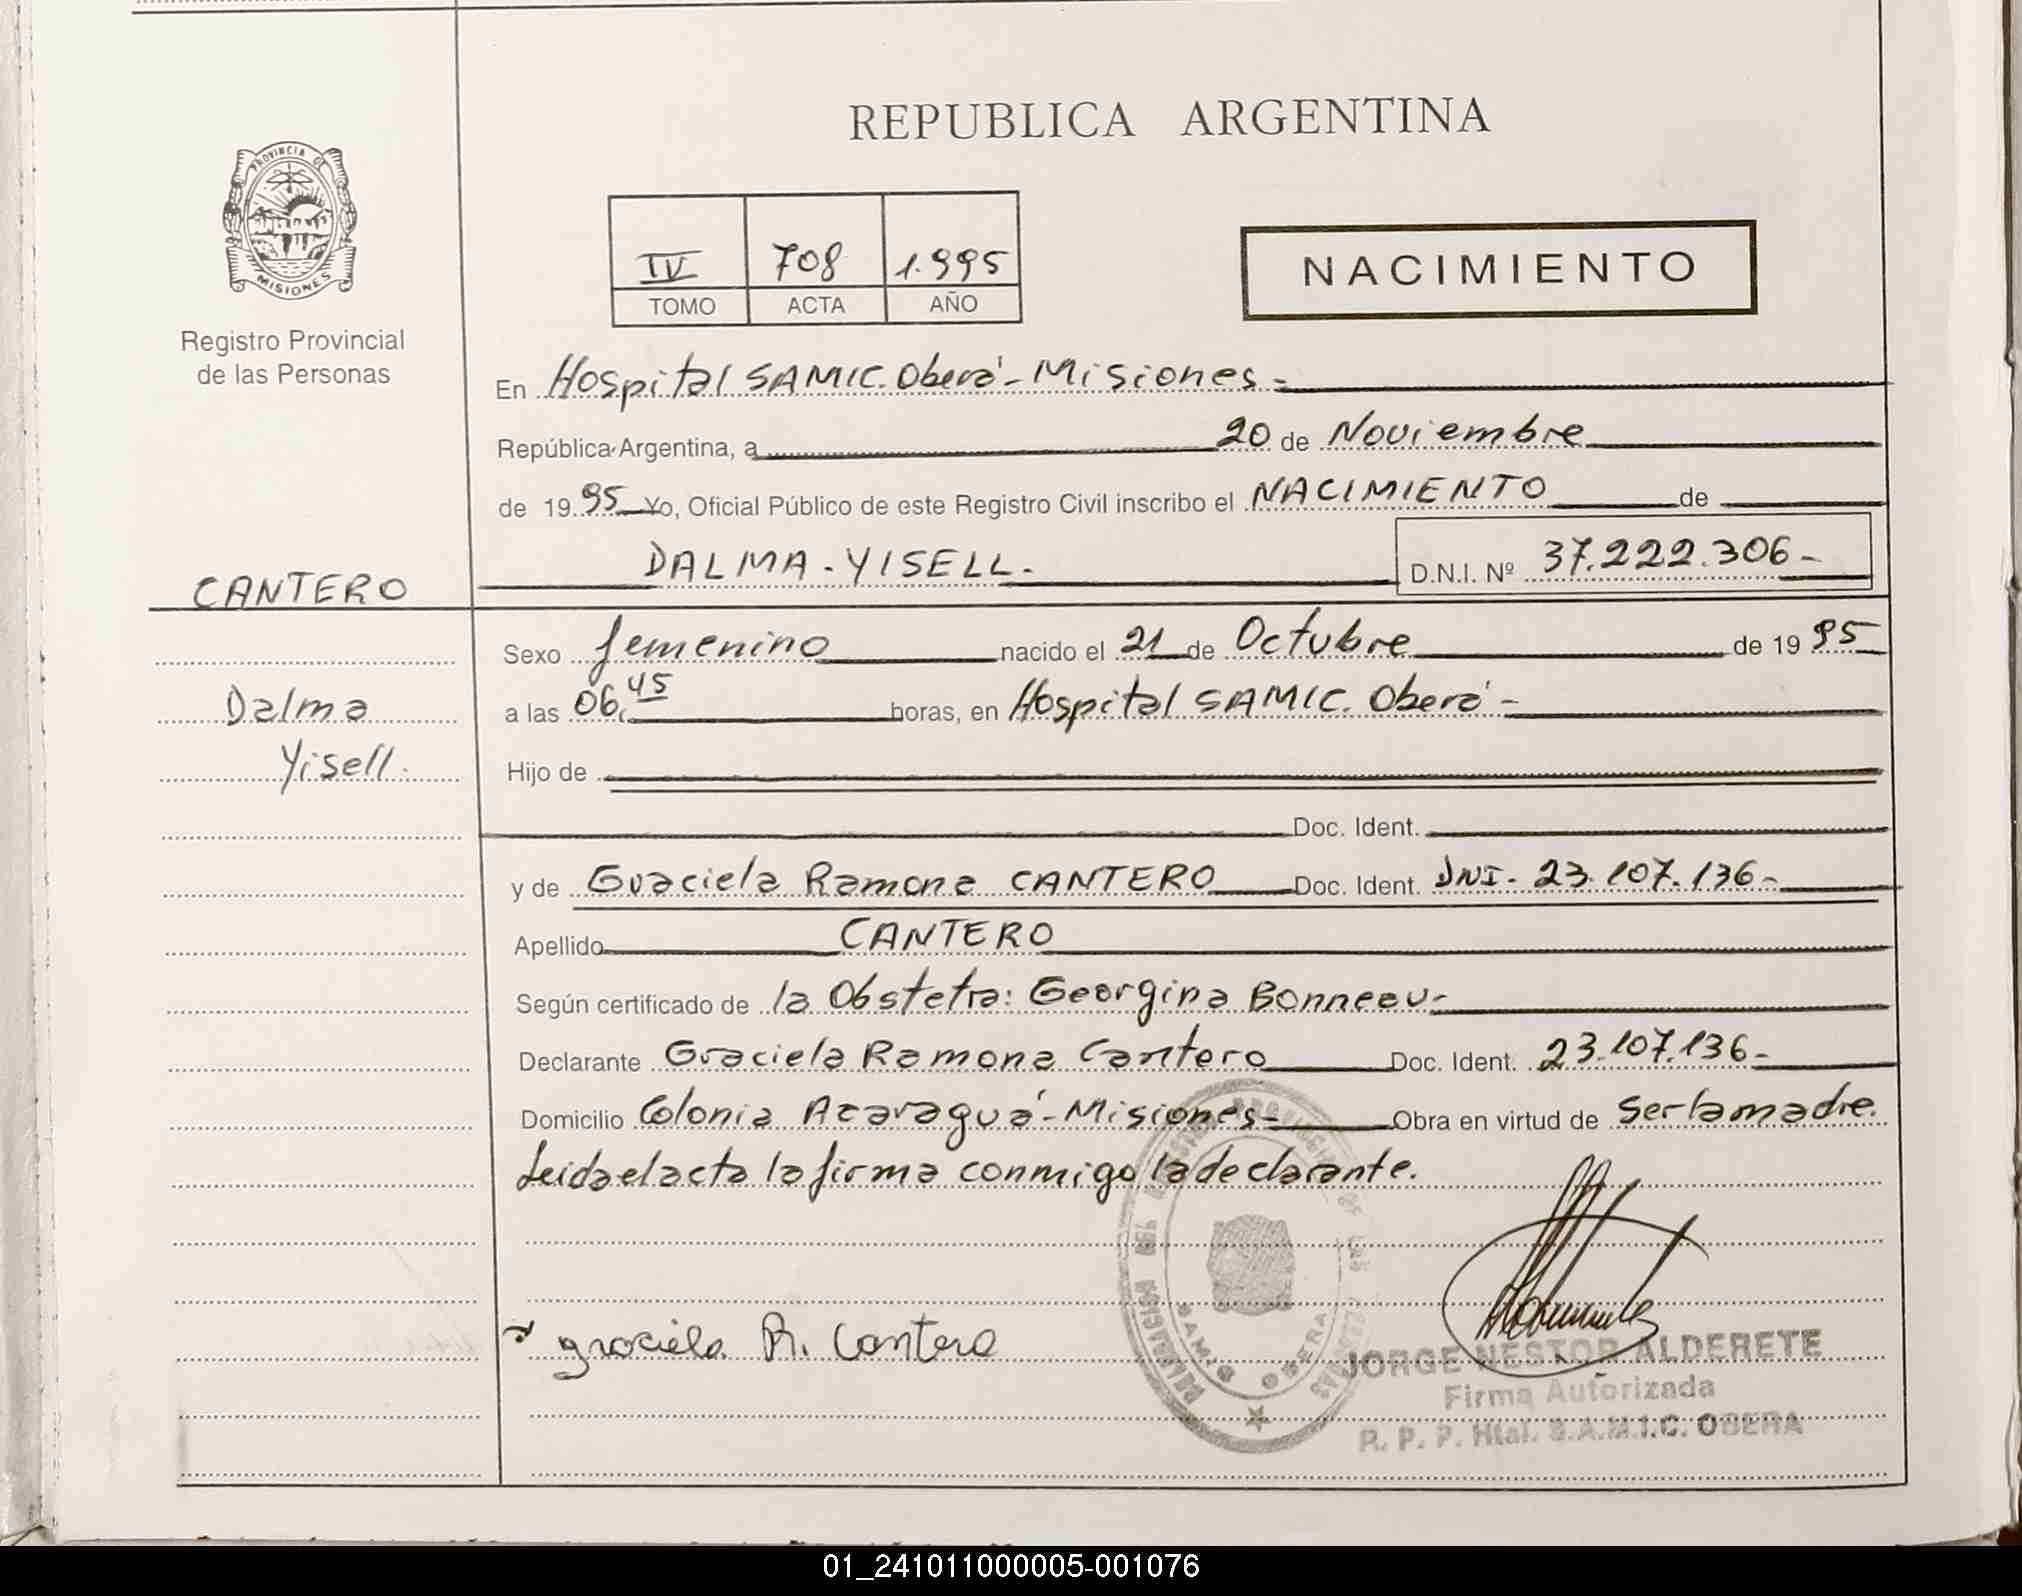 REPUBLICA ARGENTINA
PROVINCIA DE
MISIONES
Registro Provincial
de las Personas
IV 708 1.995
TOMO ACTA AÑO
NACIMIENTO
En Hospital SAMIC. Oberá - Misiones =
República Argentina, a 20 de Noviembre
de 19 95 Yo, Oficial Público de este Registro Civil inscribo el NACIMIENTO de
DALMA - YISELL. D.N.I. Nº 37.222.306 -
CANTERO
Dalma
Yisell.
Sexo femenino nacido el 21 de Octubre de 19 95
a las 06,45 horas, en Hospital SAMIC. Oberá -
Hijo de
Doc. Ident.
y de Graciela Ramona CANTERO Doc. Ident. DNI - 23.107.136 -
Apellido CANTERO
Según certificado de la Obstetra: Georgina Bonneau -
Declarante Graciela Ramona Cantero Doc. Ident. 23.107.136 -
Domicilio Colonia Acaraguá - Misiones - Obra en virtud de Ser la madre.
Leida el acta la firma conmigo la declarante.
graciela R. Cantero
SAMIC OBERA
JORGE NESTOR ALDERETE
Firma Autorizada
R. P. P. Htal. S.A.M.I.C. OBERA
01_241011000005-001076